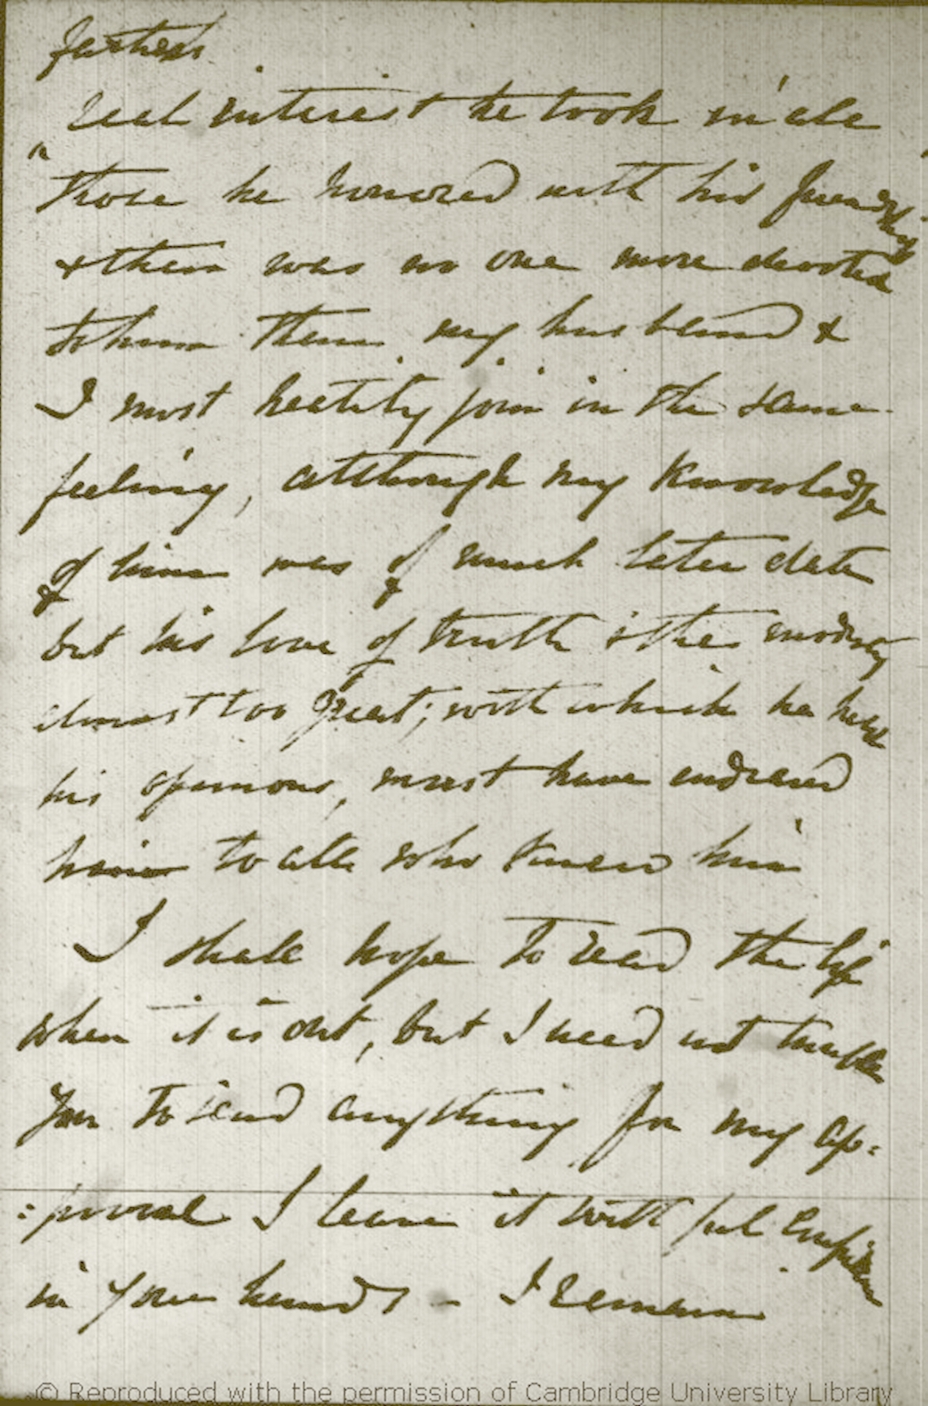 father's
real interest he took in all
"those he honored with his friendship
& there was no one more devoted
to him than my husband &
I most heartily join in the same
feeling, although my knowledge
of him was of much later date
but his love of truth & the modesty
almost too great; with which he held
his opinions, must have endeared
him to all who knew him
I shall hope to read the life
when it is out, but I need not trouble
you to send anything for my ap:
:proval I leave it with full confidence
in your hands - I remain
© Reproduced with the permission of Cambridge University Library